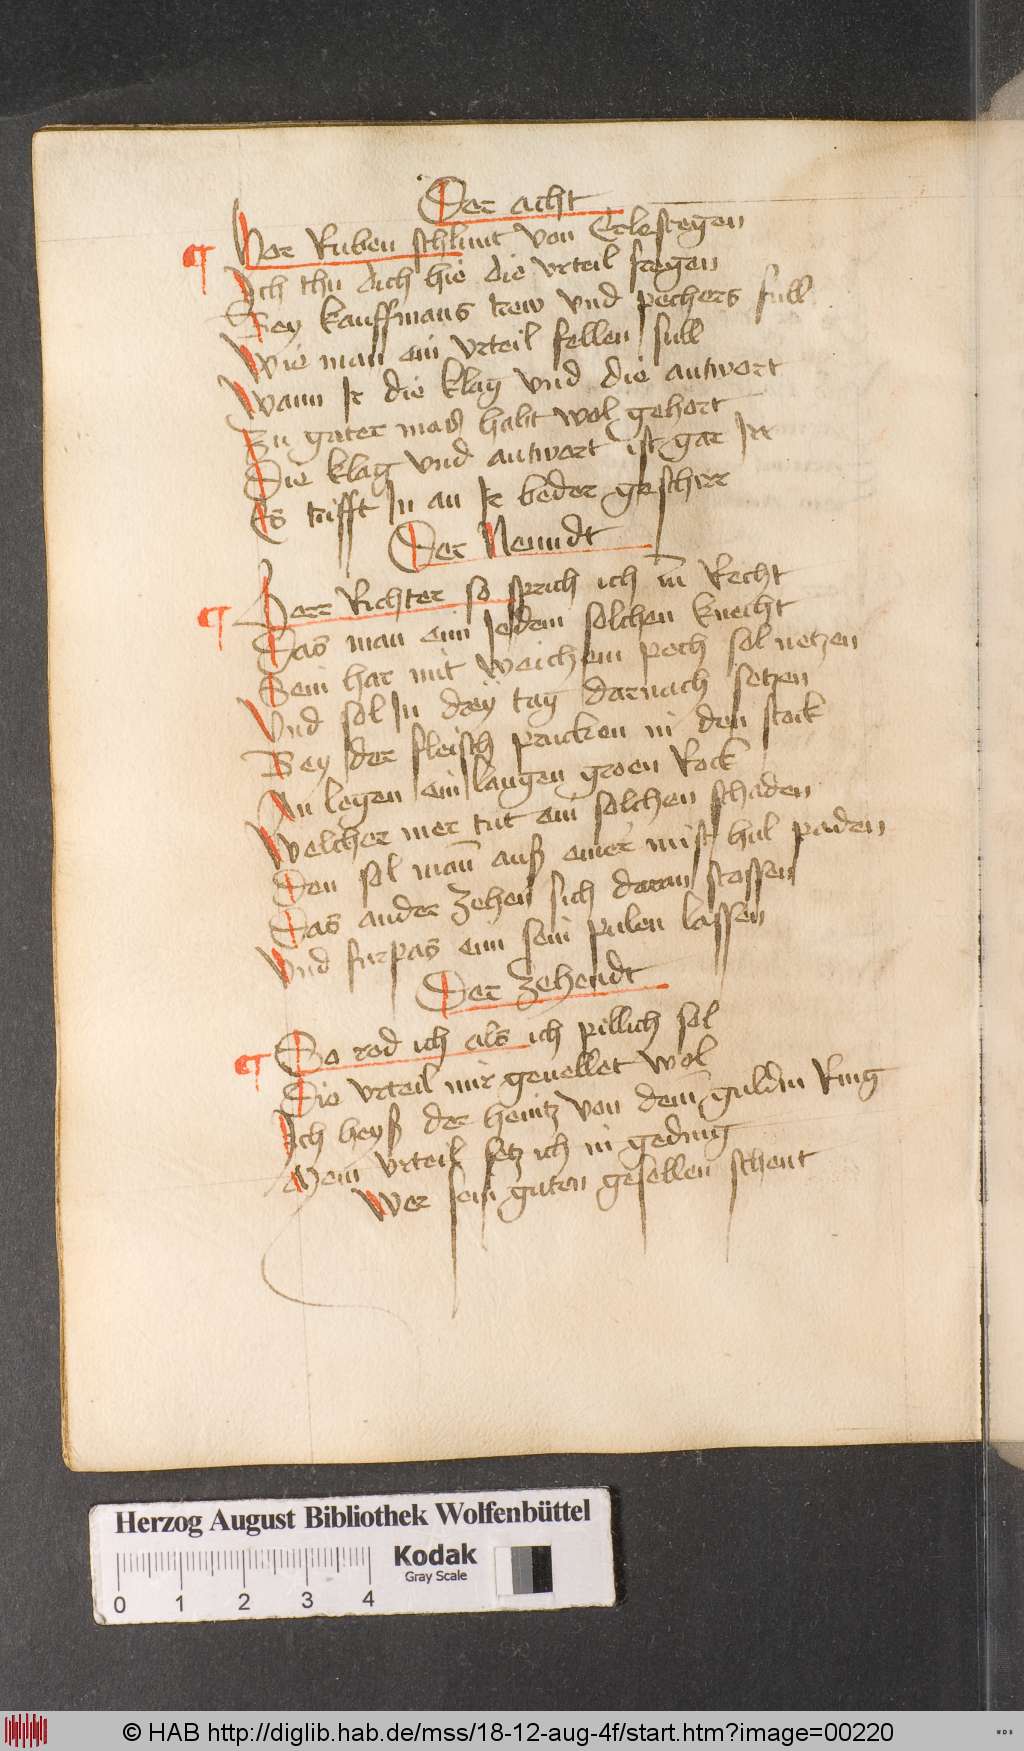 Der acht
Her Ruben schlunt von Erlestegen
Ich thu dich hie die vrteil fregen
Bey kauffmans trew vnd pechers full
Wie man ein vrteil fellen sull
Wann Ir die klag vnd die antwort
Zu guter maß habt wol gehort
Die klag vnd antwort ist gar Irr
Es trifft In an Ir beder geschirr
Der Neundt
Herr Richter so sprich ich im̄ Recht
Das man eim Iedem solchen knecht
Sein har mit weichem pech sol netzen
Vnd sol In drey tag darnach setzen
Bey der fleisch prucken in den stock
An legen ein langen groen Rock
Welcher mer tut ein solchen schaden
Den sol man̄ auß einer mist hul paden
Das ander zehen sich daran stossen
Vnd furpas eim sein pulen lassen
Der zehendt
So red ich als ich pillich sol
Die vrteil mir geuellet wol
Ich heyß der heintz von dem̄ guldin Ring
Mein vrteil setz ich in geding
Wer sein guten gesellen schent
Herzog August Bibliothek Wolfenbüttel
Kodak
Gray Scale
0 1 2 3 4
© HAB http://diglib.hab.de/mss/18-12-aug-4f/start.htm?image=00220